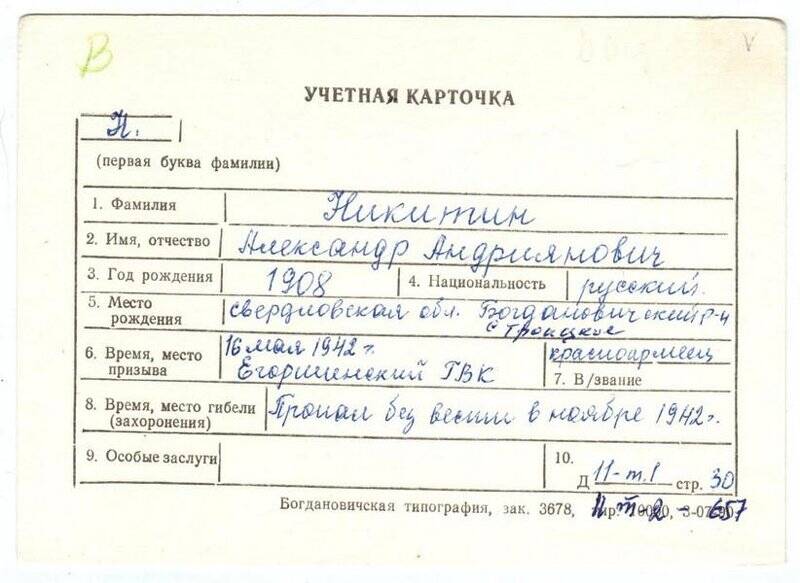 В
V
УЧЕТНАЯ КАРТОЧКА
Н.
(первая буква фамилии)
1. Фамилия Никитин
2. Имя, отчество Александр Андриянович
3. Год рождения 1908 4. Национальность русский.
5. Место рождения свердловская обл. Богдановический р-н
с Троицкое
6. Время, место призыва 16 мая 1942 г.
Егоршинский ГВК
красноармеец
7. В/звание
8. Время, место гибели (захоронения) Пропал без вести в ноябре 1942 г.
9. Особые заслуги
10.
Д 11-т.1 стр. 30
Богдановичская типография, зак. 3678,
т-2 - 657